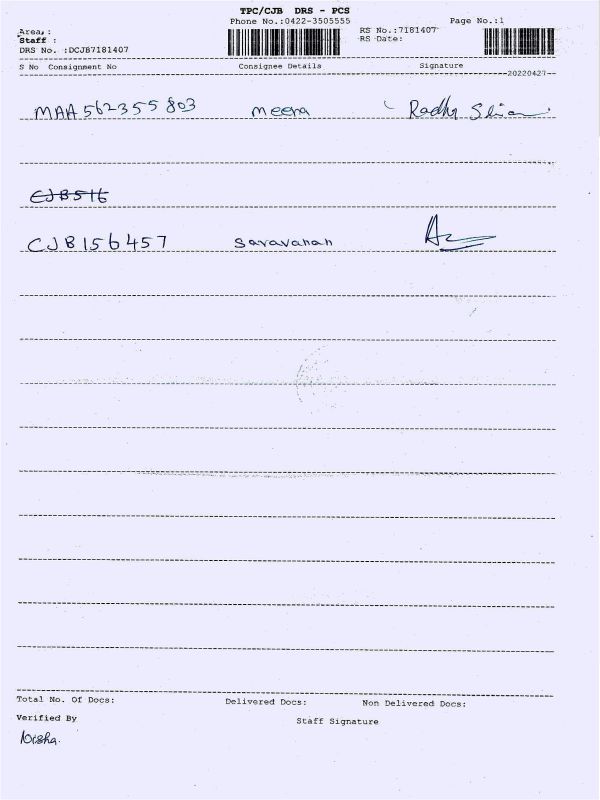 TPC/CJB DRS - PCS
Phone No.:0422-3505555 Page No.:1
Area,:
Staff : RS No.:7181407
DRS No. :DCJB7181407 RS Date:
S No Consignment No Consignee Details Signature
20220427
MAA562355803 meena Radhy
CJB516
CJB156457 Saravanan
Total No. Of Docs: Delivered Docs: Non Delivered Docs:
Verified By Staff Signature
Nisha.